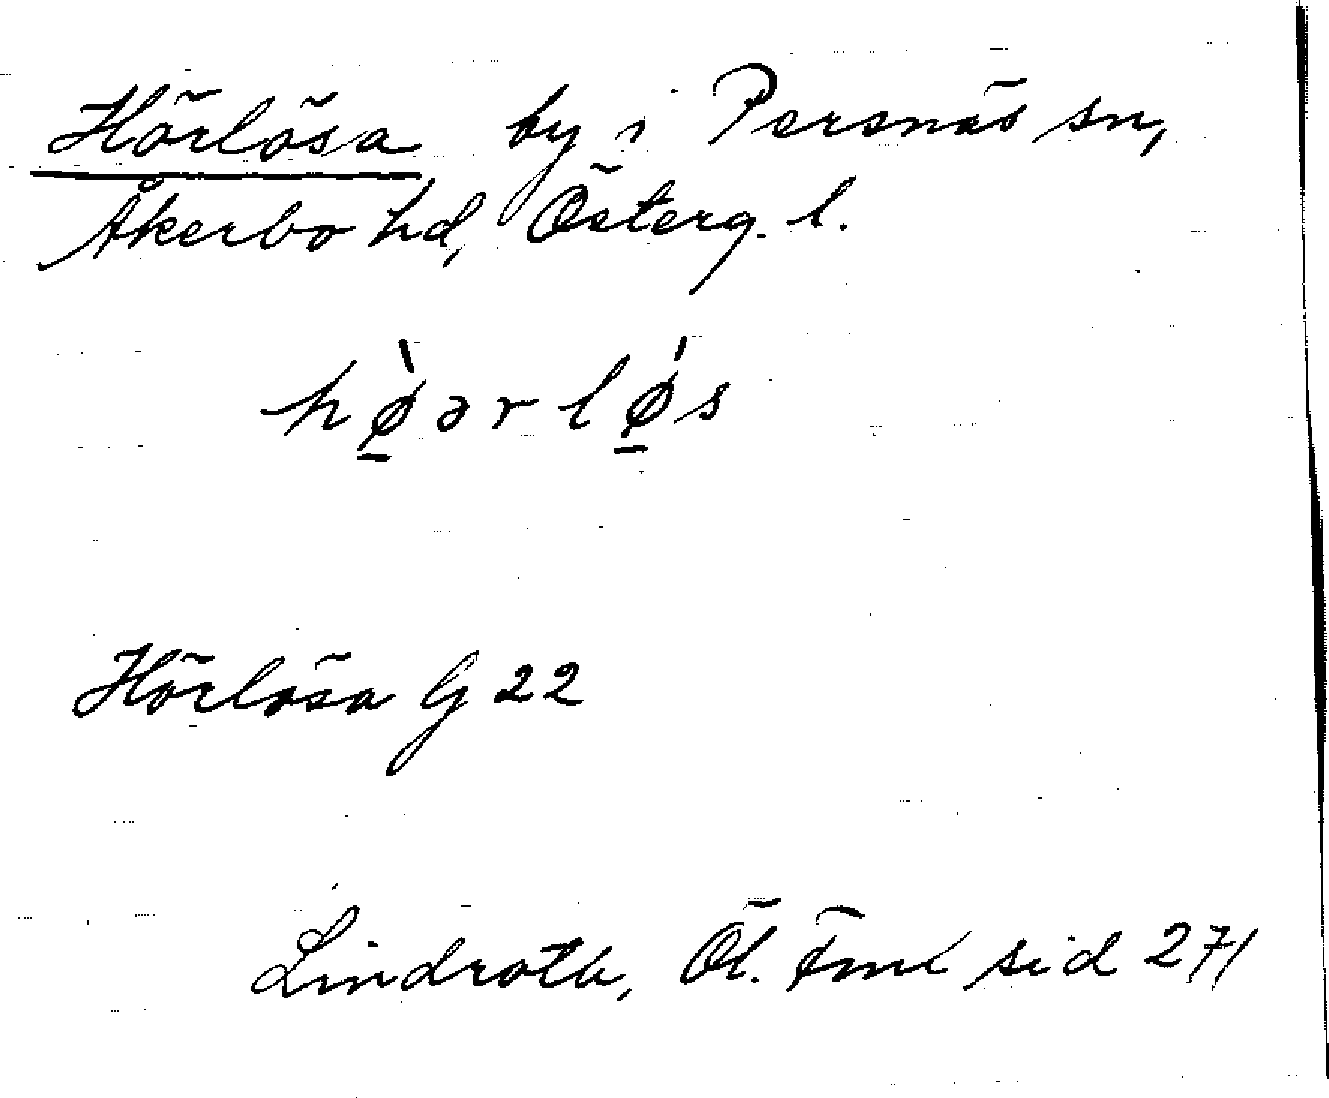 Hörlösa by i Persnäs sn,
Åkerbo hd, Österg. l.
hø̠̀ərlǿ̠s
Hörlösa G 22
Lindroth, Öl. Fmd sid 271